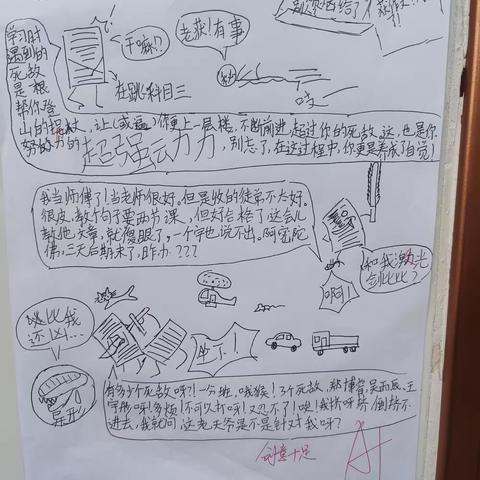 学习时
遇到的
死敌
是根
帮你登
山的拐杖，让(或逼)你更上一层楼，不断前进，超过你的死敌。这，也是你
努力的超强云力力，别忘了，在这过程中，你更是养成了自觉！
干嘛!?
在跳科目三
老获!有事
吱—
我当师傅了!当老师很好。但是收的徒弟不太好。
很皮，教个句子要两节课，但好合格了。这会儿
教他文章，就傻眼了，一个字也说不出。阿弥陀
佛，三天后期末了，咋办???
啊!
和我激光
剑比比?
还凶…
坐下!
有多少个死敌呀?!一分班，哦豁!3个死敌，
宇彤呀!多烦!不可以打呀!又忍不了!唉!我挤呀挤，倒挤不
进去，我就问，这老天爷是不是针对我呀?
创意十足
A+